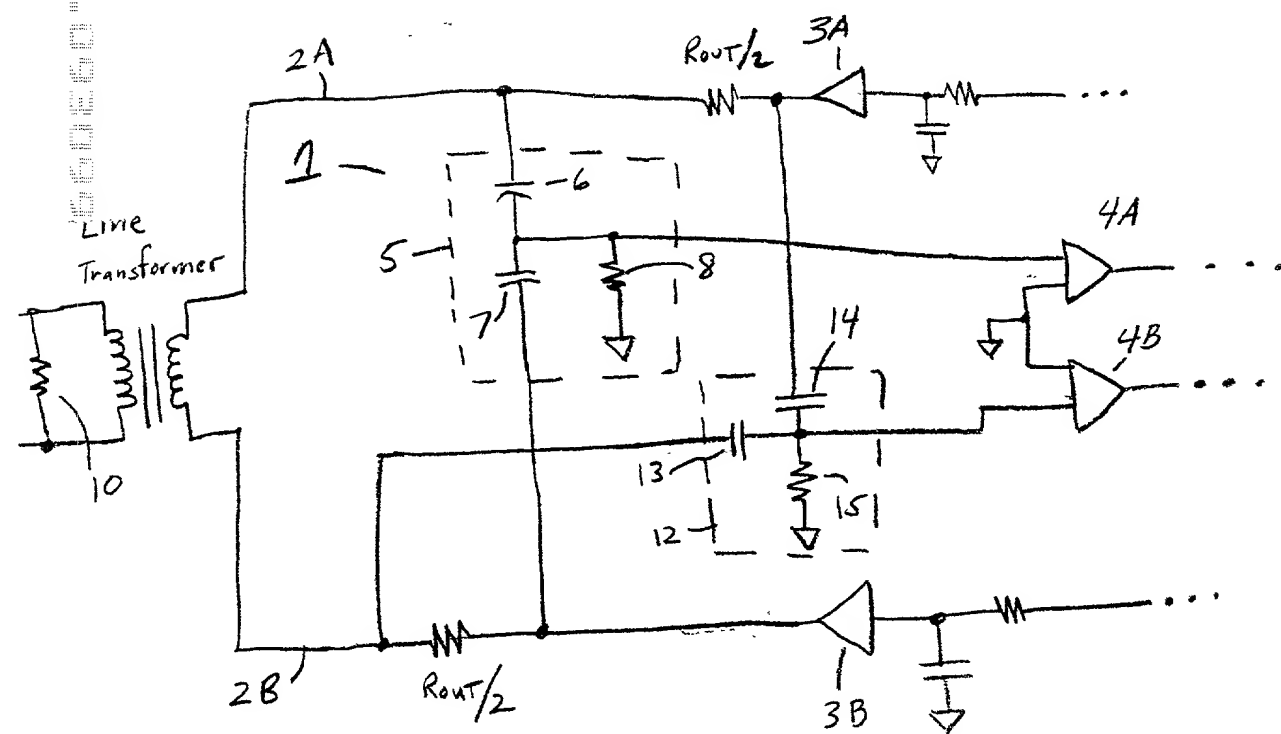 3A
ROUT/2
2A
1
6
4A
5
8
Line
Transformer
7
14
4B
13
10
15
12
2B
ROUT/2
3B